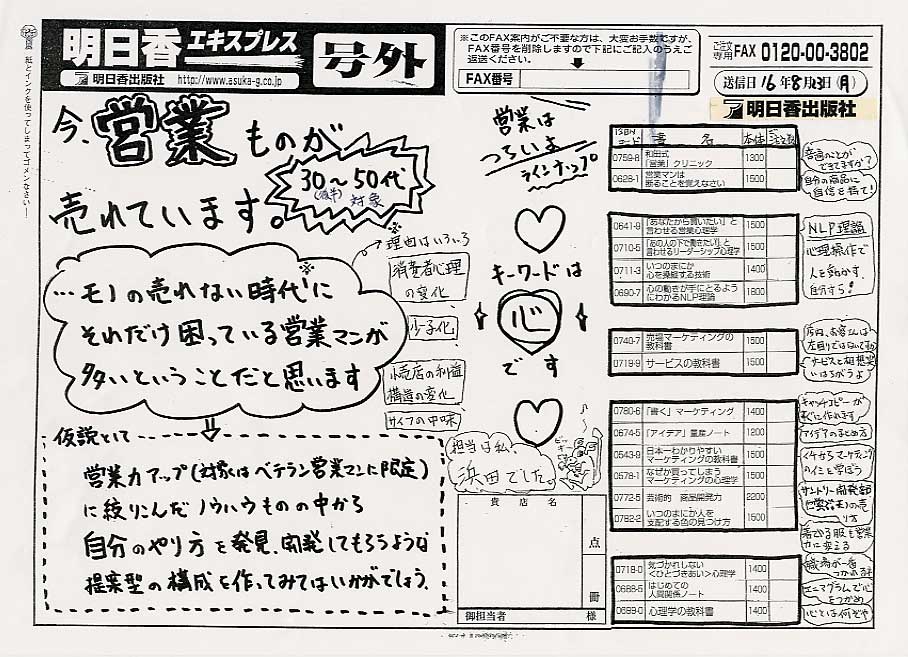 紙とインクを使ってしまってゴメンなさい!
明日香エキスプレス
号外
明日香出版社 http://www.asuka-g.co.jp
※このFAX案内がご不要な方は、大変お手数ですが、
FAX番号を削除しますので下記にご記入のうえご
返送ください。
FAX番号
ご注文専用 FAX 0120-00-3802
送信日 16年8月23日(月)
明日香出版社
今、営業ものが
売れています。
30〜50代
対象
※理由はいろいろ
消費者心理
の変化
少子化
小売店の利益
構造の変化
サイフの中味
…モノの売れない時代に※
それだけ困っている営業マンが
多いということだと思います
仮説として
営業力アップ(対象はベテラン営業マンに限定)
に絞りこんだノウハウものの中から
自分のやり方を発見、開発してもらうような
提案型の構成を作ってみてはいかがでしょう.
営業は
つらいよ
ラインナップ
キーワードは
心
です
担当は私、
浜田でした。
貴店名
点
冊
御担当者 様
ISBNコード 書名 本体 ご注文数
0759-8 和田式「営業」クリニック 1300
0628-1 営業マンは断ることを覚えなさい 1500
0641-9 「あなたから買いたい」と言わせる営業心理学 1500
0710-5 「あの人の下で働きたい」と言わせるリーダーシップ心理学 1500
0711-3 いつのまにか心を操縦する技術 1400
0690-7 心の動きが手にとるようにわかるNLP理論 1800
0740-7 売場マーケティングの教科書 1500
0719-9 サービスの教科書 1500
0780-6 「書く」マーケティング 1400
0674-5 「アイデア」量産ノート 1200
0543-9 日本一わかりやすいマーケティングの教科書 1500
0578-1 なぜか買ってしまうマーケティングの心理学 1500
0772-5 芸術的 商品開発力 2200
0782-2 いつのまにか人を支配する色の見つけ方 1500
0718-0 気づかれしない<ひとづきあい>心理学 1400
0688-5 はじめての人間関係ノート 1400
0699-0 心理学の教科書 1400
自分の商品に
自信を持て!
NLP理論
心理操作で
人を動かす.
自分すら!
キャッチコピーが
すぐに作れます
アイデアのまとめ方
職場が一番
エニアグラムで心
をつかめ
心とは何ぞや